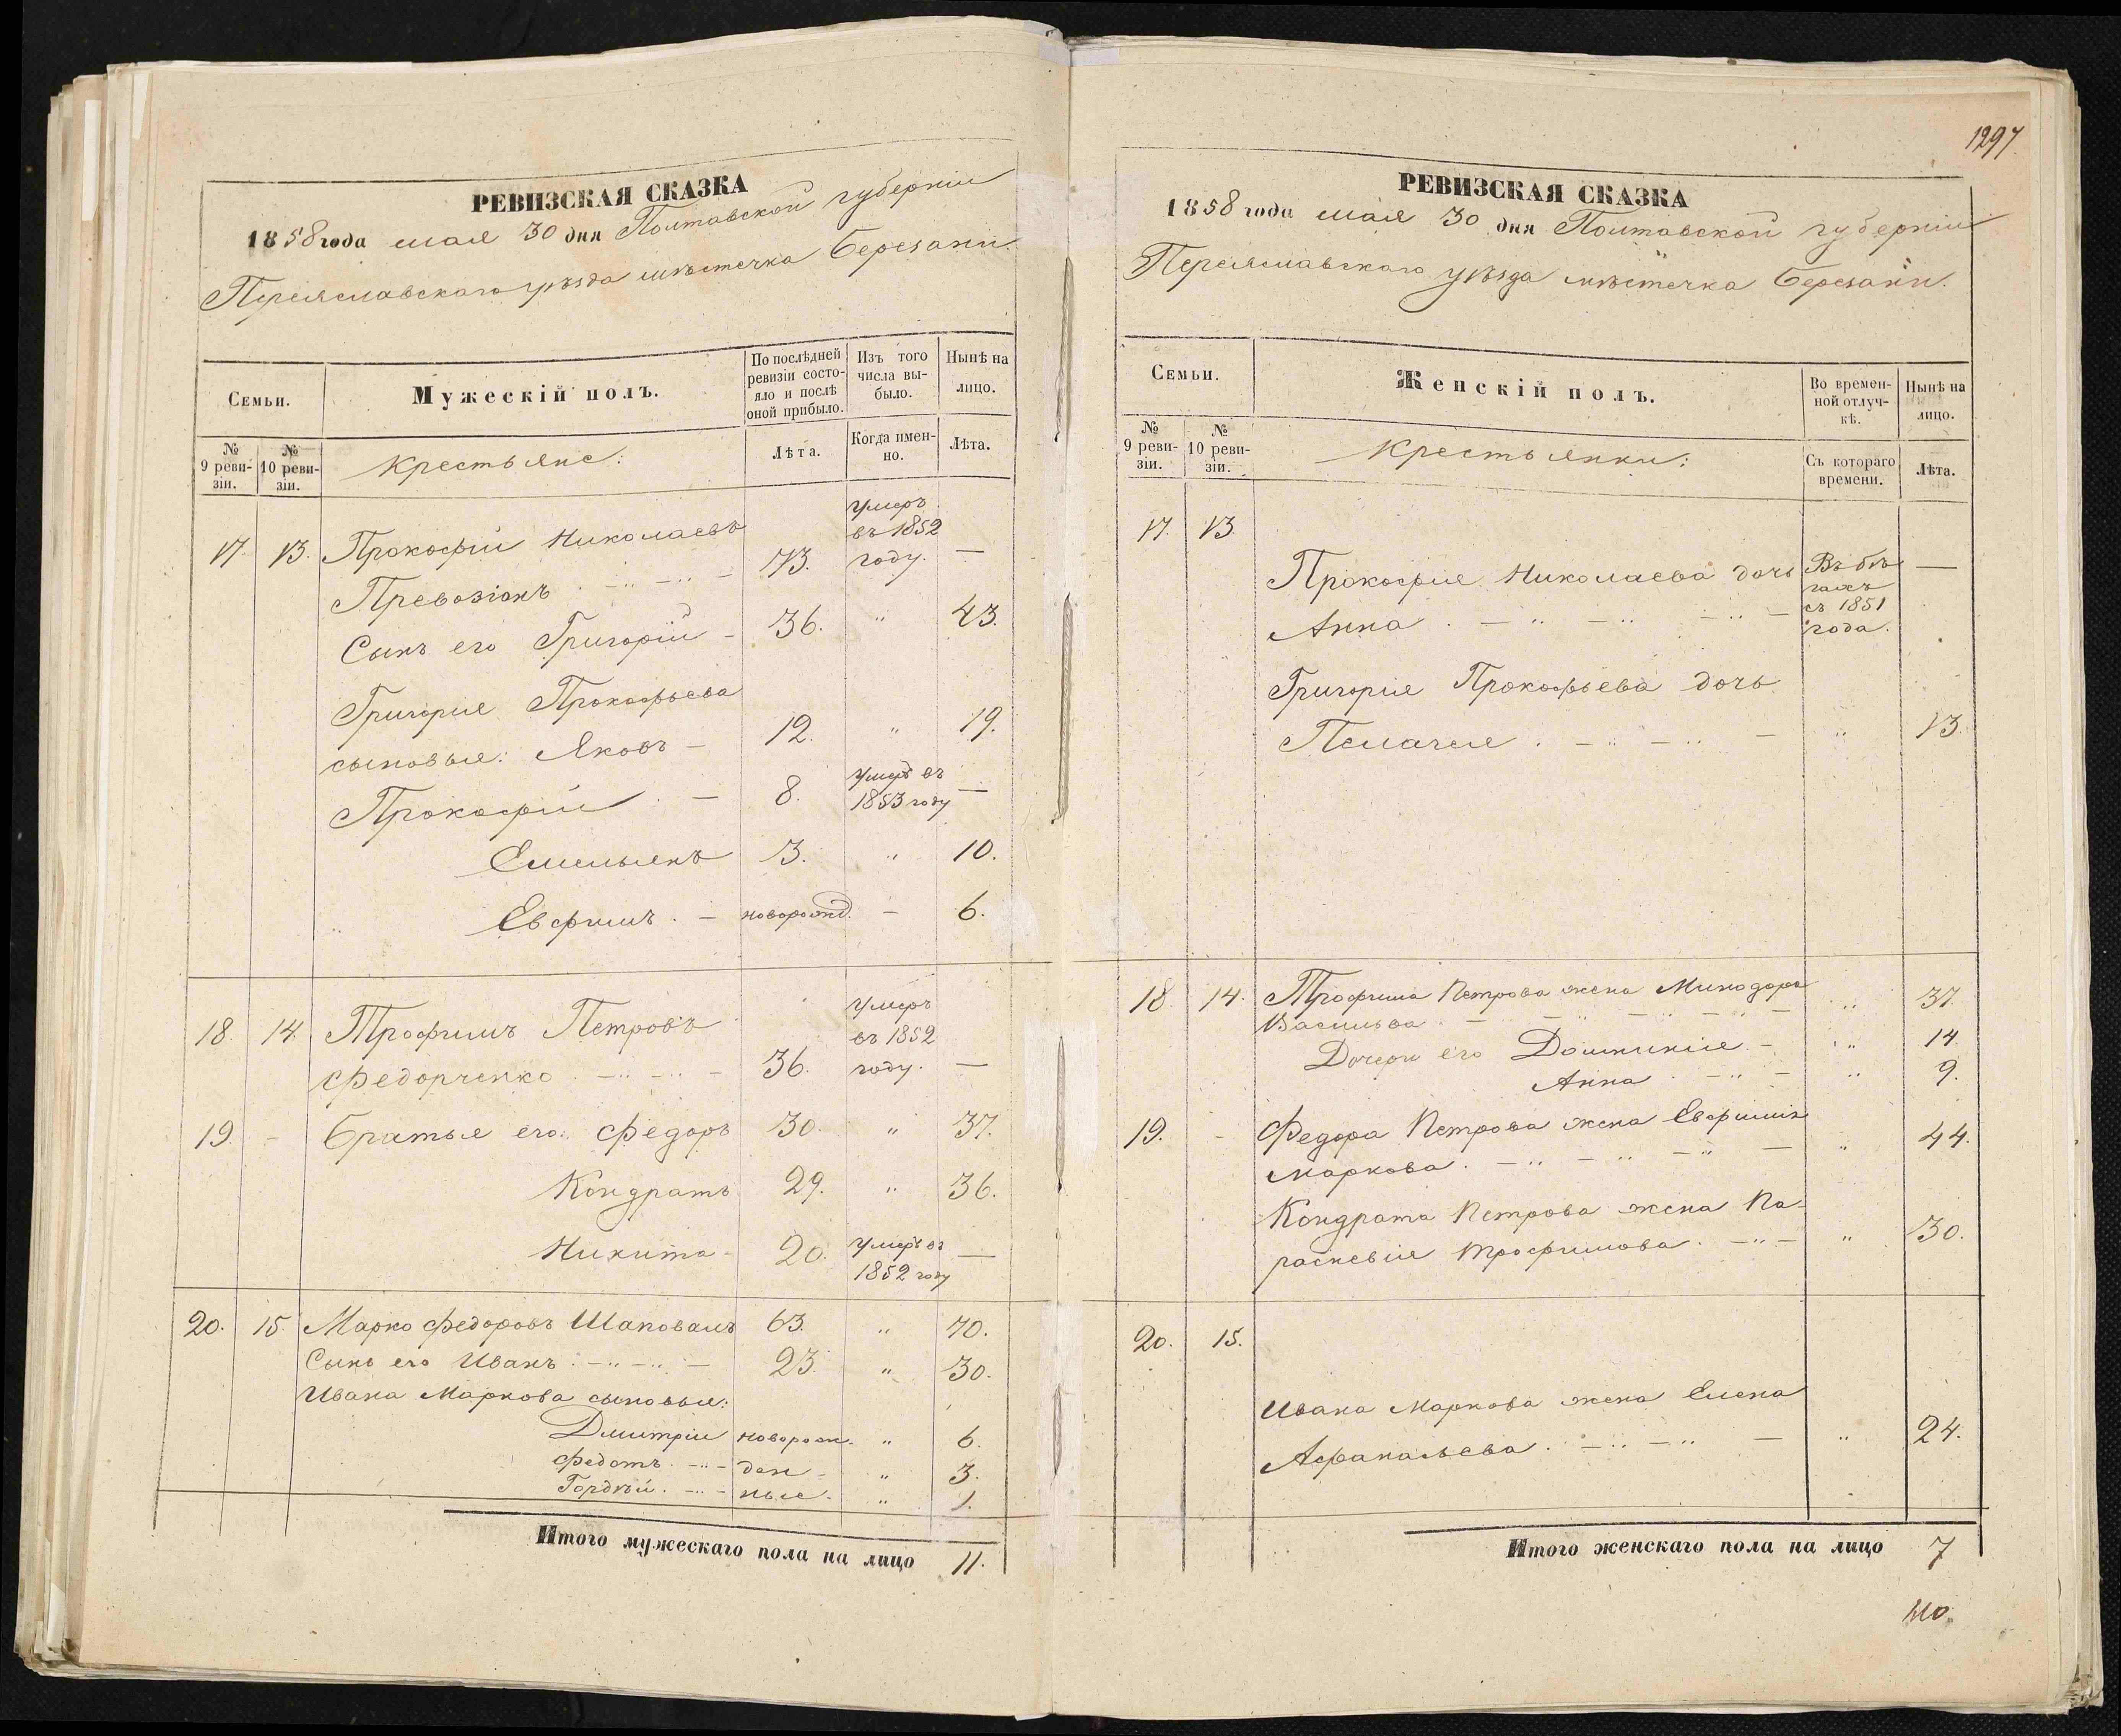 РЕВИЗСКАЯ СКАЗКА
1858 года мая 30 дня Полтавской губерніи
Переяславскаго уѣзда мѣстечка Березани.
Семьи.
Мужескій полъ.
По послѣдней ревизіи состояло и послѣ оной прибыло.
Изъ того числа выбыло.
Нынѣ на лицо.
№ 9 ревизіи.
№ 10 ревизіи.
Крестьяне:
Лѣта.
Когда именно.
Лѣта.
17. 13. Прокофій Николаевъ
умеръ въ 1852 году.
73. —
Сынъ его Григорій — 36. " 43.
Григорія Прокофьева
сыновья: Яковъ — 12. " 19.
Прокофій . — 8. умеръ въ 1853 году —
Емельянъ 3. " 10.
Евфимъ . — новорожд. — 6.
18. 14. Трофимъ Петровъ
умеръ въ 1852 году.
Федорченко . — " — " — 36. —
19. — Братья его: Федоръ 30. " 37.
Кондратъ 29. " 36.
Никита — 20. умеръ въ 1852 году —
20. 15. Марко Федоровъ Шаповалъ 63. " 70.
Сынъ его Иванъ . — " — " — 23. " 30.
Ивана Маркова сыновья:
Дмитрій новорож- " 6.
Федотъ . — " — ден- " 3.
Гордѣй . — " — ные. " 1.
Итого мужескаго пола на лицо 11.
1297
РЕВИЗСКАЯ СКАЗКА
1858 года мая 30 дня Полтавской губерніи
Переяславскаго уѣзда мѣстечка Березани.
Семьи.
Женскій полъ.
Во временной отлучкѣ.
Нынѣ на лицо.
№ 9 ревизіи.
№ 10 ревизіи.
Крестьянки:
Съ котораго времени.
Лѣта.
17. 13.
Прокофія Николаева дочь
Въ бѣгахъ съ 1851 года.
—
Анна . — " — " — " —
Григорія Прокофьева дочь
Пелагея . — " — " — " 13.
18. 14. Трофима Петрова жена Минодора
Васильева . — " — " — " — " 37.
Дочери его Домникія — " 14.
Анна . — " — " 9.
19. — Федора Петрова жена Евфимія
Маркова . — " — " — " — " 44.
Кондрата Петрова жена Па-
раскевія Трофимова . — " — " 30.
20. 15.
Ивана Маркова жена Елена
Афанасьева . — " — " — " 24.
Итого женскаго пола на лицо 7